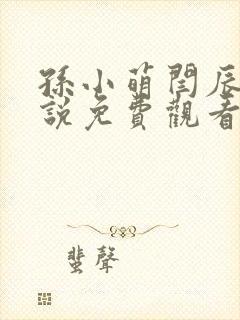 孫小萌閆辰
說免費觀看
蜚聲